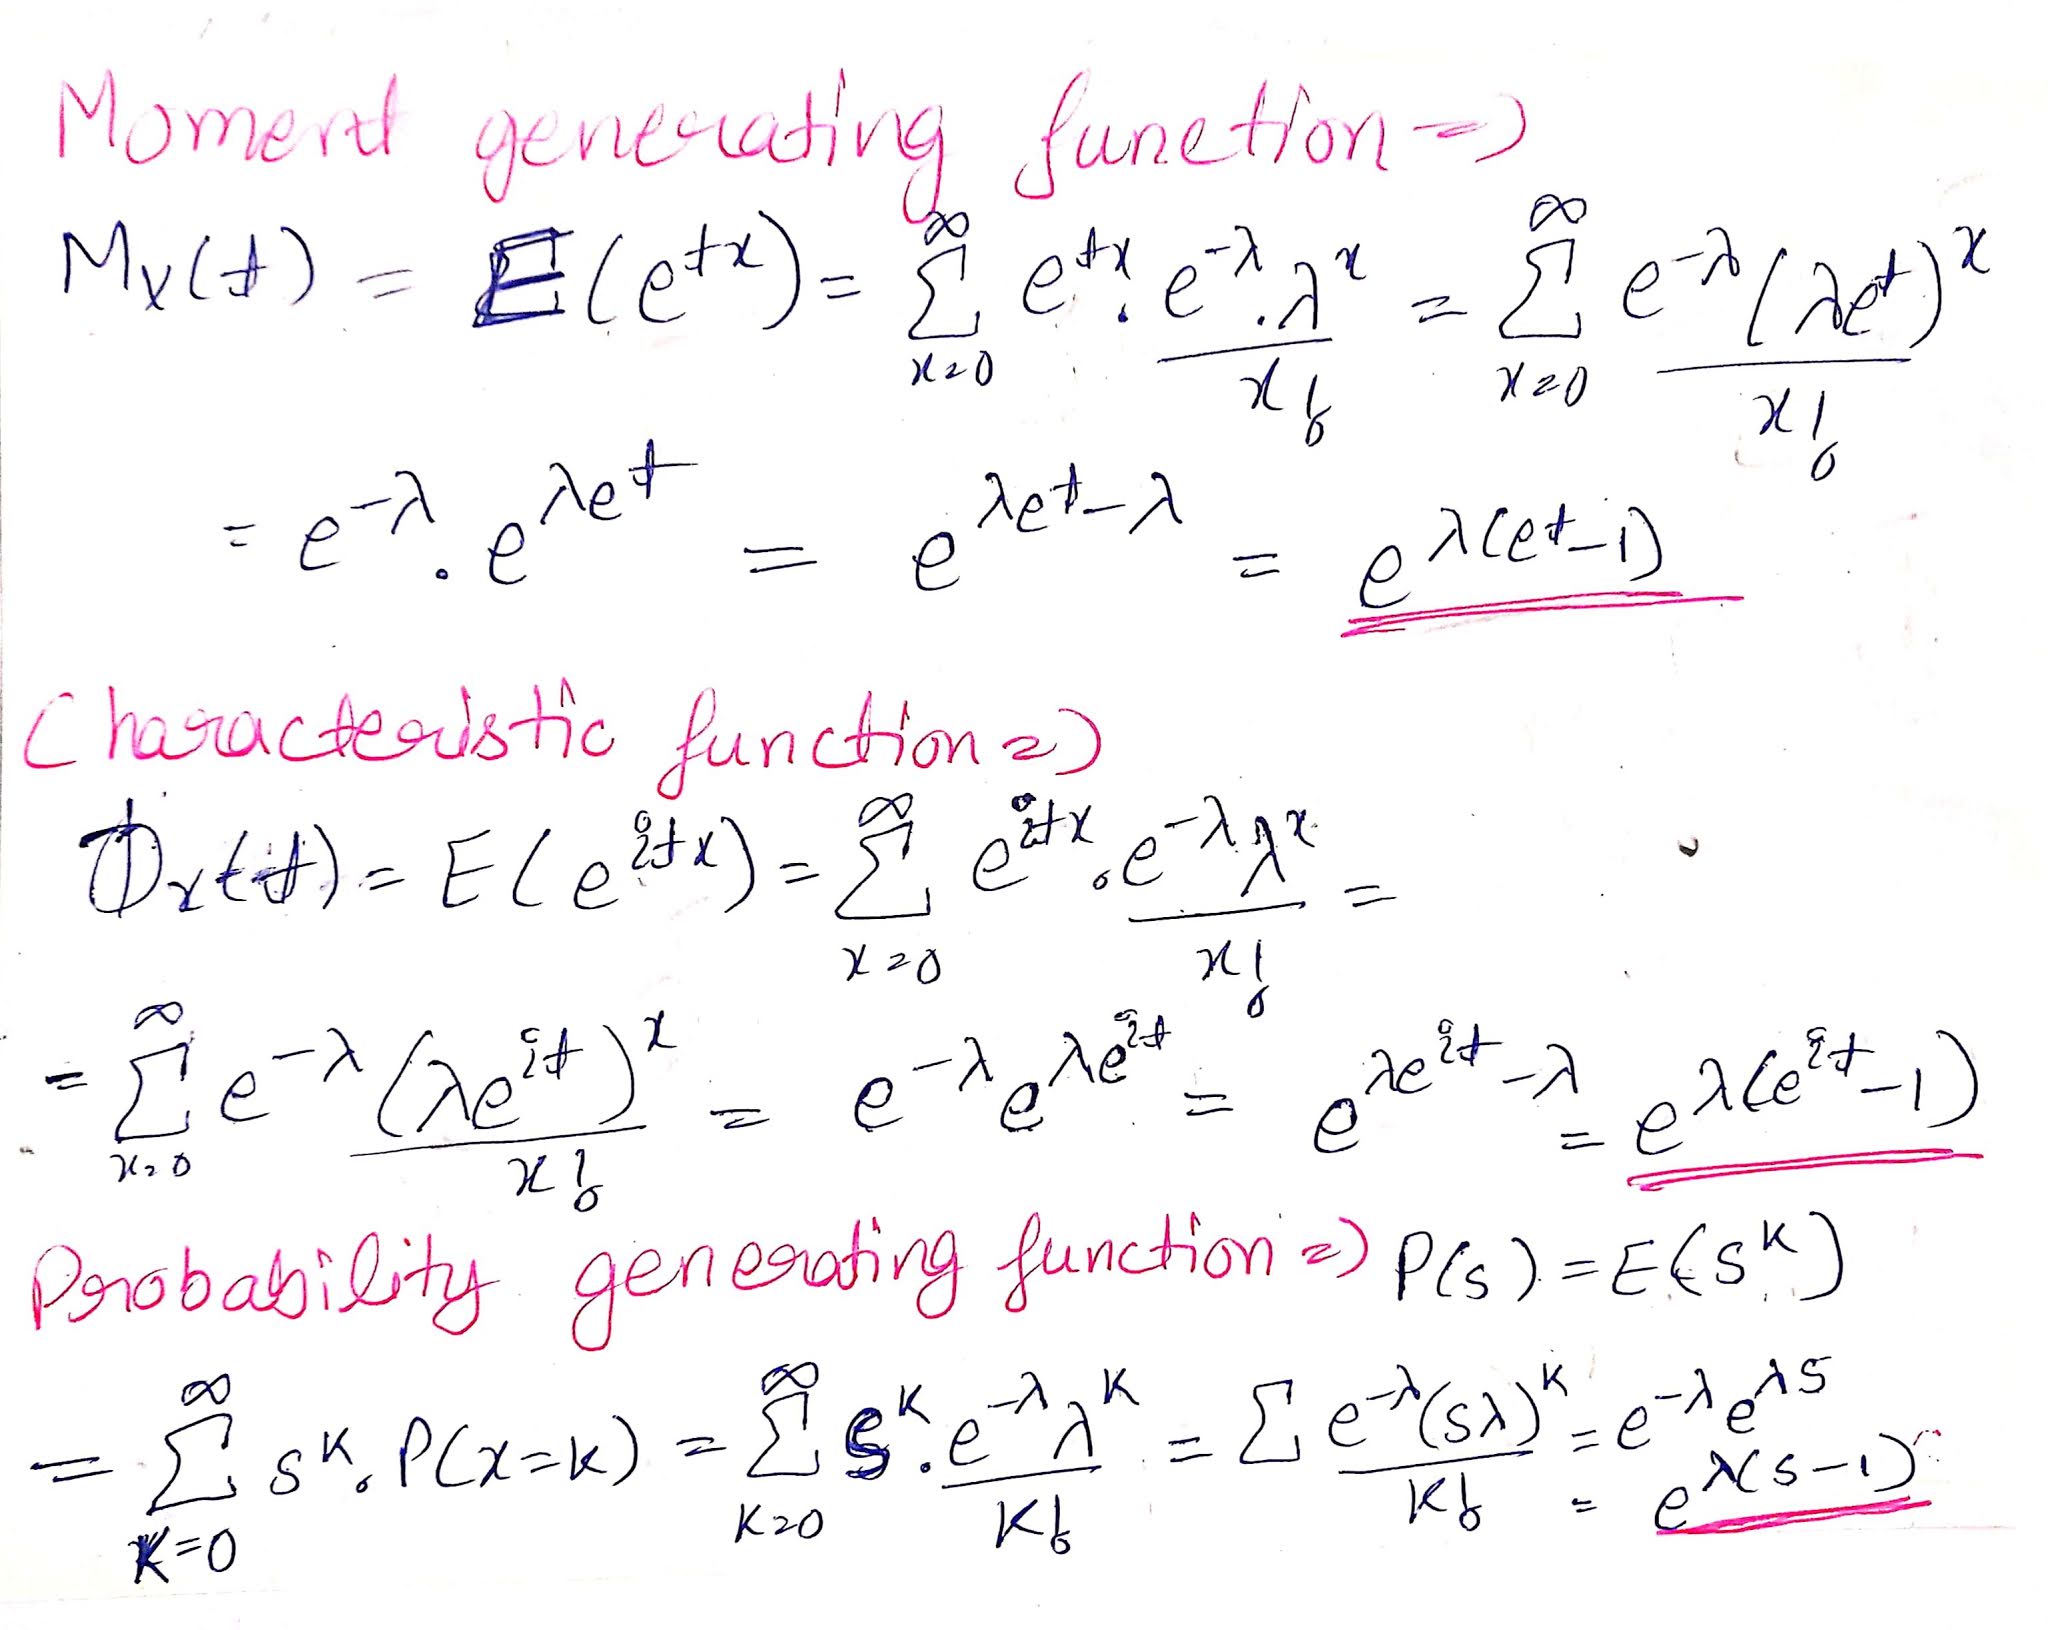 Moment generating function =>
Mx(t) = E(e^{tx}) = \sum_{x=0}^{∞} e^{tx} . \frac{e^{-λ} . λ^x}{x!} = \sum_{x=0}^{∞} \frac{e^{-λ} (λe^t)^x}{x!}
= e^{-λ} . e^{λe^t} = e^{λe^t - λ} = e^{λ(e^t - 1)}
Characteristic function =>
Φx(t) = E(e^{itx}) = \sum_{x=0}^{∞} e^{itx} . \frac{e^{-λ} λ^x}{x!} =
= \sum_{x=0}^{∞} \frac{e^{-λ} (λe^{it})^x}{x!} = e^{-λ} e^{λe^{it}} = e^{λe^{it} - λ} = e^{λ(e^{it} - 1)}
Probability generating function => P(s) = E(s^k)
= \sum_{k=0}^{∞} s^k . P(x=k) = \sum_{k=0}^{∞} s^k . \frac{e^{-λ} λ^k}{k!} = \sum \frac{e^{-λ} (sλ)^k}{k!} = e^{-λ} e^{λs}
= e^{λ(s-1)}